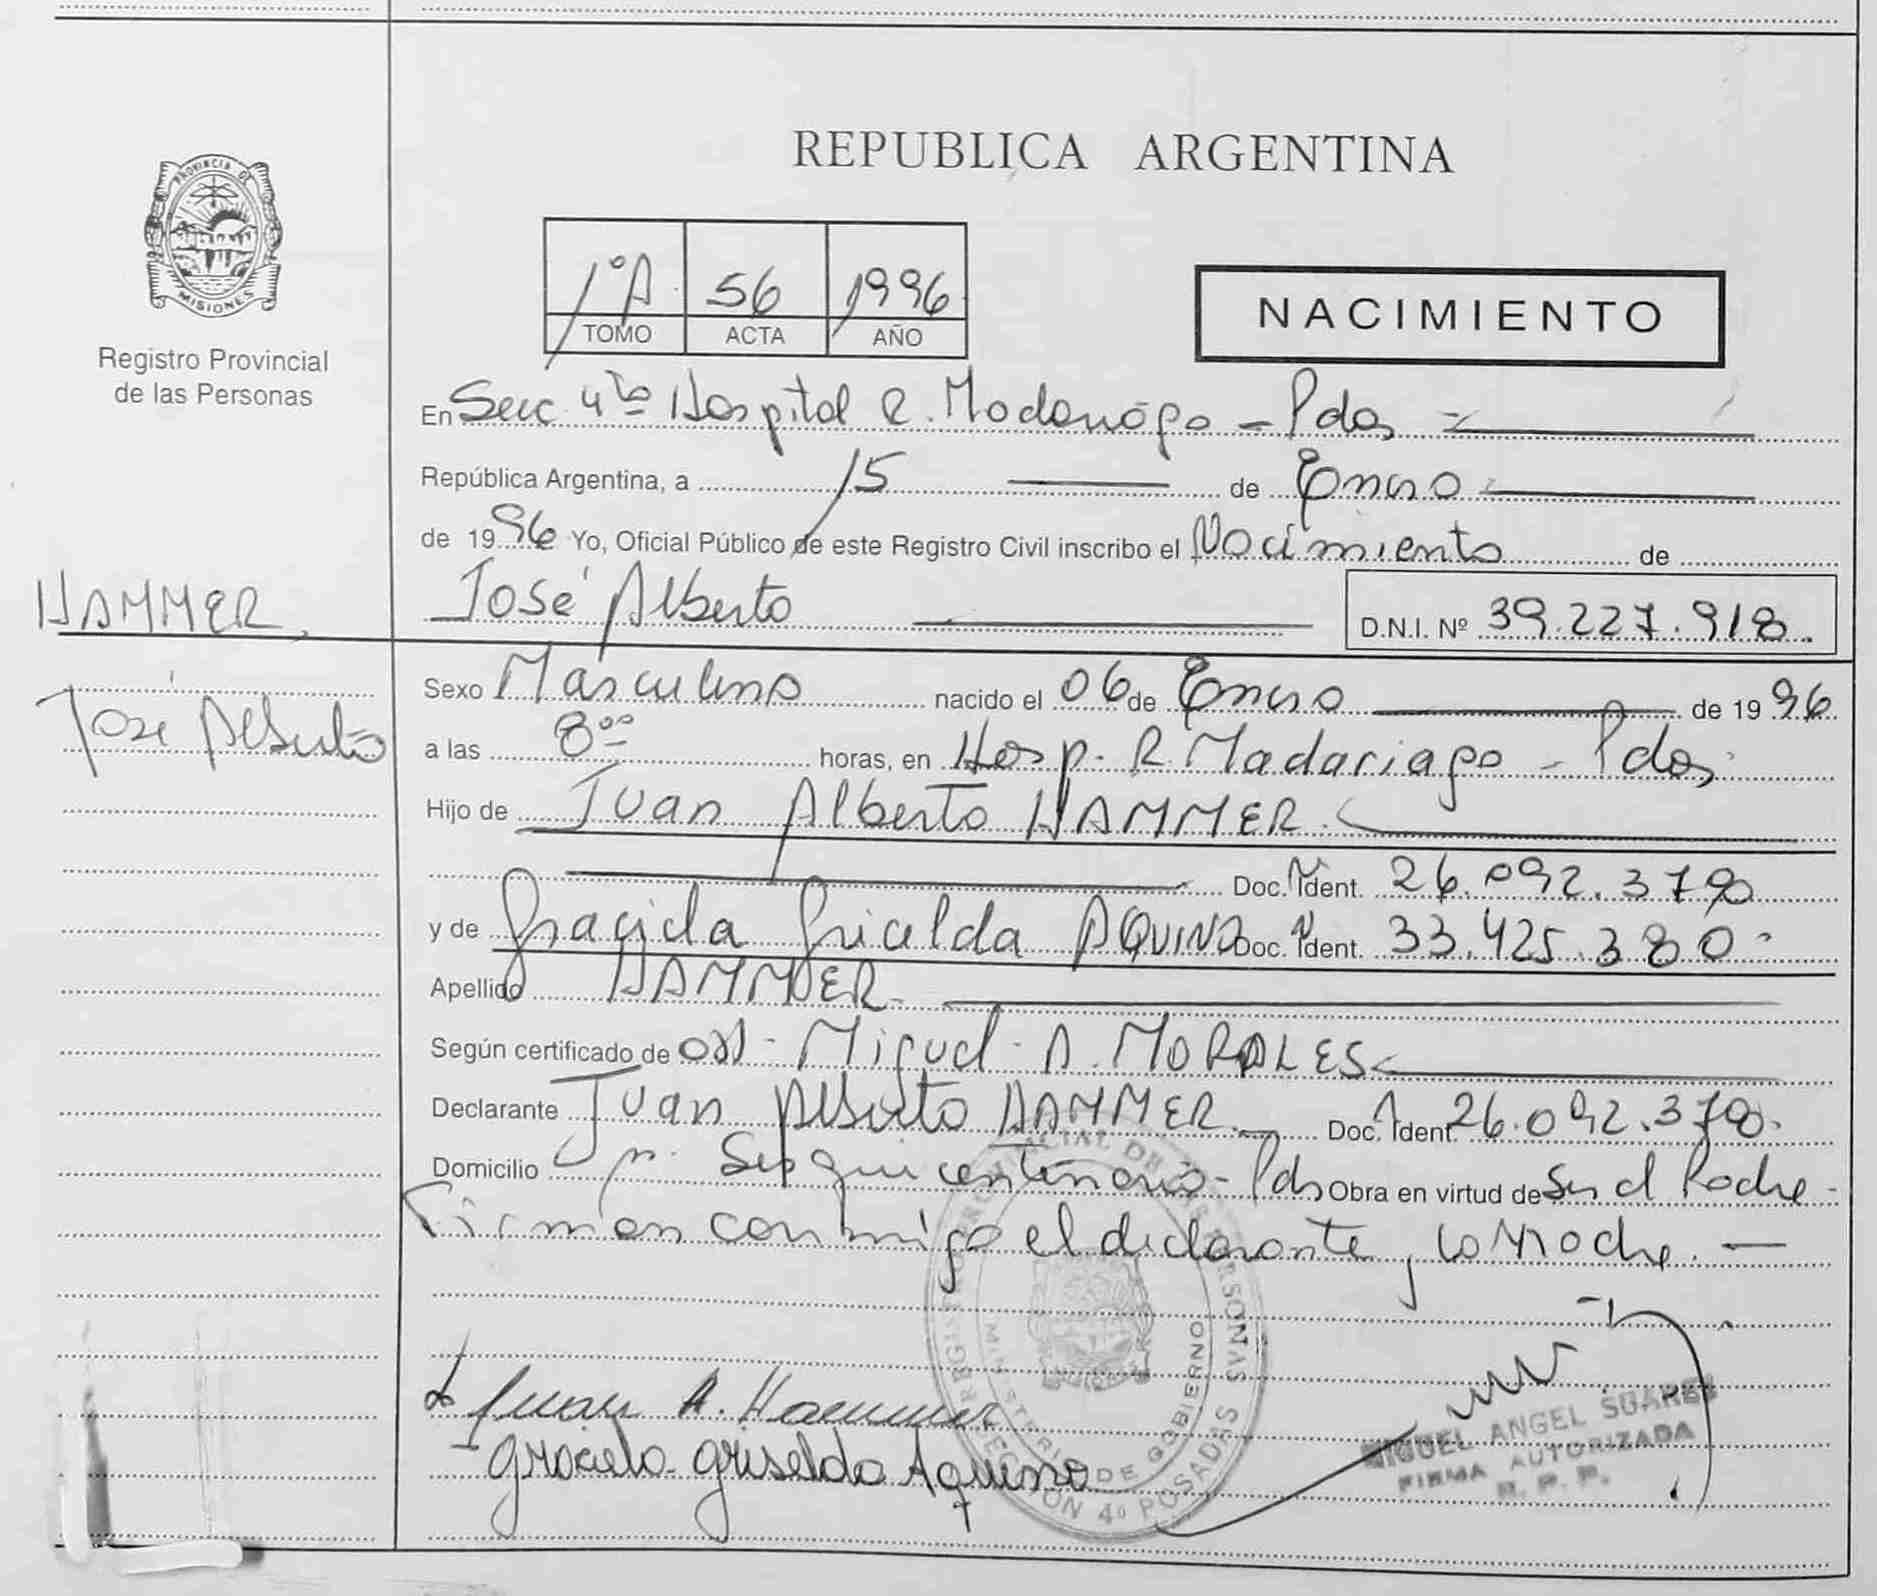 REPUBLICA ARGENTINA
PROVINCIA DE
MISIONES
Registro Provincial
de las Personas
1ºA 56 1996
TOMO ACTA AÑO
NACIMIENTO
En Secc 4ta Hospital R. Madariaga - Pdas
República Argentina, a 15 de Enero
de 1996 Yo, Oficial Público de este Registro Civil inscribo el Nacimiento de
HAMMER
José Alberto
D.N.I. Nº 39.227.918.
José Alberto
Sexo Masculino nacido el 06 de Enero de 1996
a las 8ºº horas, en Hosp. R. Madariaga - Pdas
Hijo de Juan Alberto HAMMER.
Doc. Ident. 26.092.370
y de Graciela Gricelda AQUINO Doc. Ident. 33.425.380
Apellido HAMMER
Según certificado de Miguel A. MORALES
Declarante Juan Alberto HAMMER Doc. Ident. 26.092.370.
Domicilio Sesquicentenario - Pdas Obra en virtud de Ser el Padre -
Firman conmigo el declarante y la Madre. —
Juan A. Hammer
Graciela Griselda Aquino
REGISTRO PROVINCIAL DE LAS PERSONAS
MINISTERIO DE GOBIERNO
SECCION 4º POSADAS
MIGUEL ANGEL SUAREZ
FIRMA AUTORIZADA
R. P. P.